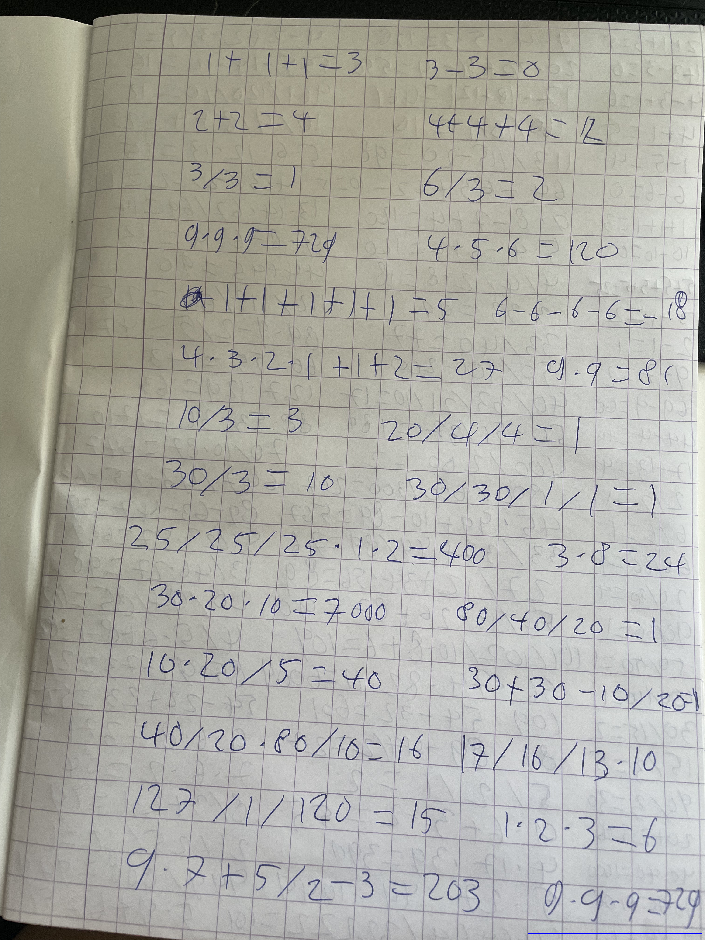 1+1+1=3 3-3=0
2+2=4 4+4+4=12
3/3=1 6/3=2
9·9·9=729 4·5·6=120
1+1+1+1+1=5 6-6-6-6=-18
4·3·2·1+1+2=27 9·9=81
10/3=3 20/4/4=1
30/3=10 30/30/1/1=1
25/25/25·1·2=400 3·8=24
30·20·10=7000 80/40/20=1
10·20/5=40 30+30-10/20=1
40/20·80/10=16 17/16/13·10
127/1/120=15 1·2·3=6
9·7+5/2-3=203 9·9·9=729